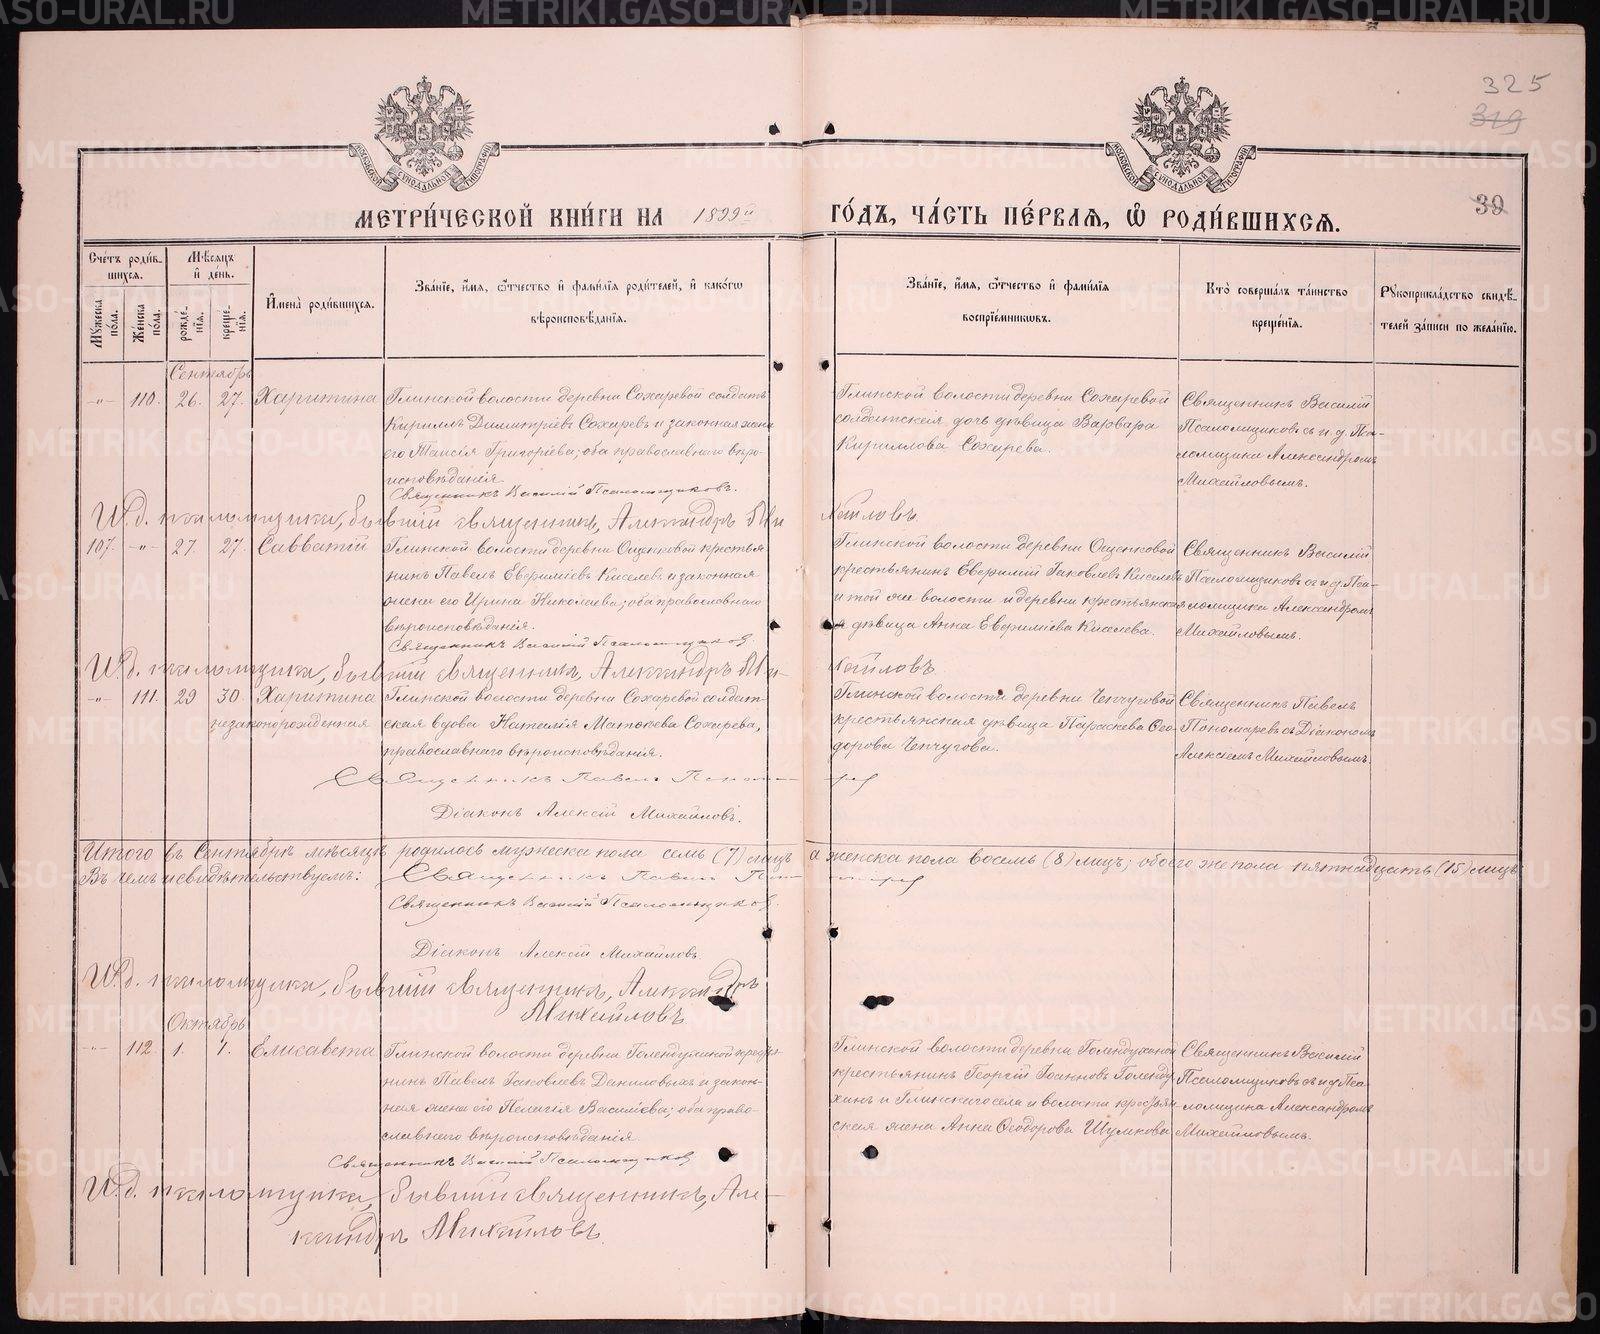 325
319
39
МОСКОВСКОЙ СѴНОДАЛЬНОЙ ТИПОГРАФІИ
МОСКОВСКОЙ СѴНОДАЛЬНОЙ ТИПОГРАФІИ
МЕТРИ́ЧЕСКОЙ КНИ́ГИ НА 1899й ГО́ДЪ, ЧА́СТЬ ПЕ́РВАѦ, Ѡ҆ РОДИ́ВШИХСѦ.
Сче́тъ роди́вшихсѧ.
Мѣ́сѧцъ и҆ де́нь.
И҆мена̀ роди́вшихсѧ.
Зва́нїе, и҆́мѧ, ѻ҆́тчество и҆ фами́лїѧ роди́телей, и҆ како́гѡ
вѣроисповѣ́данїѧ.
Зва́нїе, и҆́мѧ, ѻ҆́тчество и҆ фами́лїѧ
воспрїе́мникѡвъ.
Кто̀ соверша́лъ та́инство
креще́нїѧ.
Рꙋкоприкла́дство свидѣ́-
телей за́писи по жела́нїю.
Мꙋ́жеска по́ла.
Же́нска по́ла.
рожде́-нїѧ.
креще́-нїѧ.
Сентябрь
-"- 110. 26. 27. Харитина
Глинской волости деревни Сохаревой солдатъ
Кириллъ Димитріевъ Сохаревъ и законная жена
его Таисія Григоріева; оба православнаго вѣро-
исповѣданія.
Священникъ Василій Псаломщиковъ.
Глинской волости деревни Сохаревой
солдатская дочь дѣвица Варвара
Кириллова Сохарева.
Священникъ Василій
Псаломщиковъ съ и.д. Пса-
ломщика Александромъ
Михайловымъ.
И.д. псаломщика, бывшій священникъ, Александръ Михайловъ.
107. -"- 27. 27. Савватій
Глинской волости деревни Ощепковой крестья
нинъ Павелъ Евѳиміевъ Киселевъ и законная
жена его Ирина Николаева; оба православнаго
вѣроисповѣданія.
Священникъ Василій Псаломщиковъ.
Глинской волости деревни Ощепковой
крестьянинъ Евѳимій Іаковлевъ Киселевъ
и той же волости и деревни крестьянская
дѣвица Анна Евѳиміева Киселева.
Священникъ Василій
Псаломщиковъ съ и.д. Пса-
ломщика Александромъ
Михайловымъ.
И.д. псаломщика, бывшій священникъ, Александръ Михайловъ.
-"- 111. 29 30. Харитина
незаконорожденная
Глинской волости деревни Сохаревой солдат-
ская вдова Наталія Матѳеева Сохарева,
православнаго вѣроисповѣданія.
Глинской волости деревни Чепчуговой
крестьянская дѣвица Параскева Ѳео
дорова Чепчугова.
Священникъ Павелъ
Пономаревъ съ Діакономъ
Алексіемъ Михайловымъ.
Священникъ Павелъ Пономарев
Діаконъ Алексій Михайловъ.
Итого въ Сентябрѣ мѣсяцѣ родилось мужеска пола семь (7) лицъ а женска пола восемь (8) лицъ; обоего же пола пятнадцать (15) лицъ
Въ чемъ и свидѣтельствуемъ: Священникъ Павелъ Пономарев
Священникъ Василій Псаломщиковъ.
Діаконъ Алексій Михайловъ.
И.д. псаломщика, бывшій священникъ, Александръ
Михайловъ.
Октябрь
-"- 112 1. 1. Елисавета
Глинской волости деревни Голендухиной крестья-
нинъ Павелъ Іаковлевъ Даниловыхъ и закон-
ная жена его Пелагія Василіева; оба право-
славнаго вѣроисповѣданія.
Священникъ Василій Псаломщиковъ
Глинской волости деревни Голендухиной
крестьянинъ Георгій Іоанновъ Голенду
хинъ и Глинскаго села и волости крестьян
ская жена Анна Ѳеодорова Шумкова
Священникъ Василій
Псаломщиковъ съ и.д. Пса-
ломщика Александромъ
Михайловымъ.
И.д. псаломщика, бывшій священникъ, Але-
ксандръ Михайловъ.
METRIKI.GASO-URAL.RU